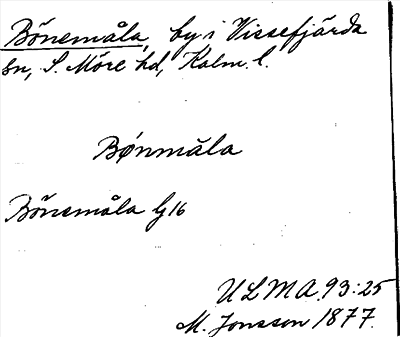 Bönemåla, by i Vissefjärda
sn, S. Möre hd, Kalm. l.
Bønmåla
Bönemåla G 16
ULMA 93:25
M. Jonsson 1877.